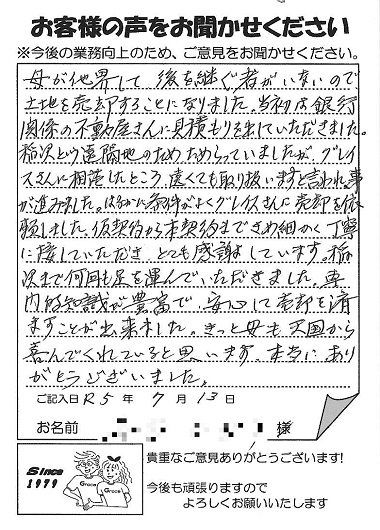 お客様の声をお聞かせください
※今後の業務向上のため、ご意見をお聞かせください。
母が他界して 後を継ぐ者がいないので
土地を売却することになりました。当初は銀行
関係の不動屋さんに見積もりを出していただきました。
稲沢という遠隔地のためためらっていましたが、グレイ
スさんに相談したところ 遠くても取り扱いますと言われ、事
が進みました。はるかに条件がよくグレイスさんに売却を依
頼しました。仮契約から本契約まできめ細かく丁寧
に接していただき とても感謝しています。稲
沢まで何回も足を運んでいただきました。専
門的知識が豊富で、安心して売却を済
ますことが出来ました。きっと母も天国から
喜んでくれていると思います。本当にあり
がとうございました。
ご記入日 R5 年 7 月 13 日
お名前 様
Since
1979
Grace
Grace
貴重なご意見ありがとうございます!
今後も頑張りますので
よろしくお願いいたします